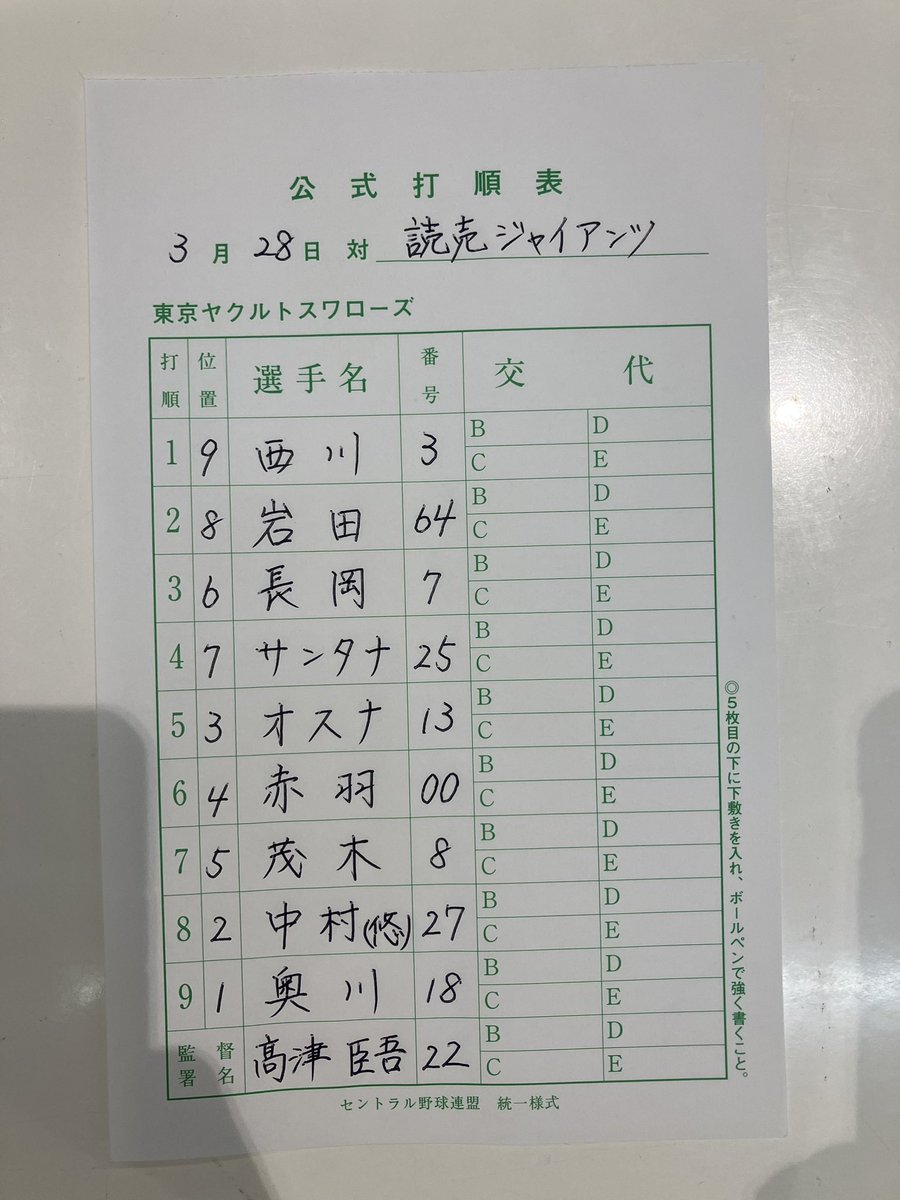 公式打順表
3月28日 対 読売ジャイアンツ
東京ヤクルトスワローズ
打順 位置 選手名 番号 交代
1 9 西川 3 B D C E
2 8 岩田 64 B D C E
3 6 長岡 7 B D C E
4 7 サンタナ 25 B D C E
5 3 オスナ 13 B D C E
6 4 赤羽 00 B D C E
7 5 茂木 8 B D C E
8 2 中村(悠) 27 B D C E
9 1 奥川 18 B D C E
監督署名 高津臣吾 22 B D C E
セントラル野球連盟 統一様式
◎5枚目の下に下敷きを入れ、ボールペンで強く書くこと。